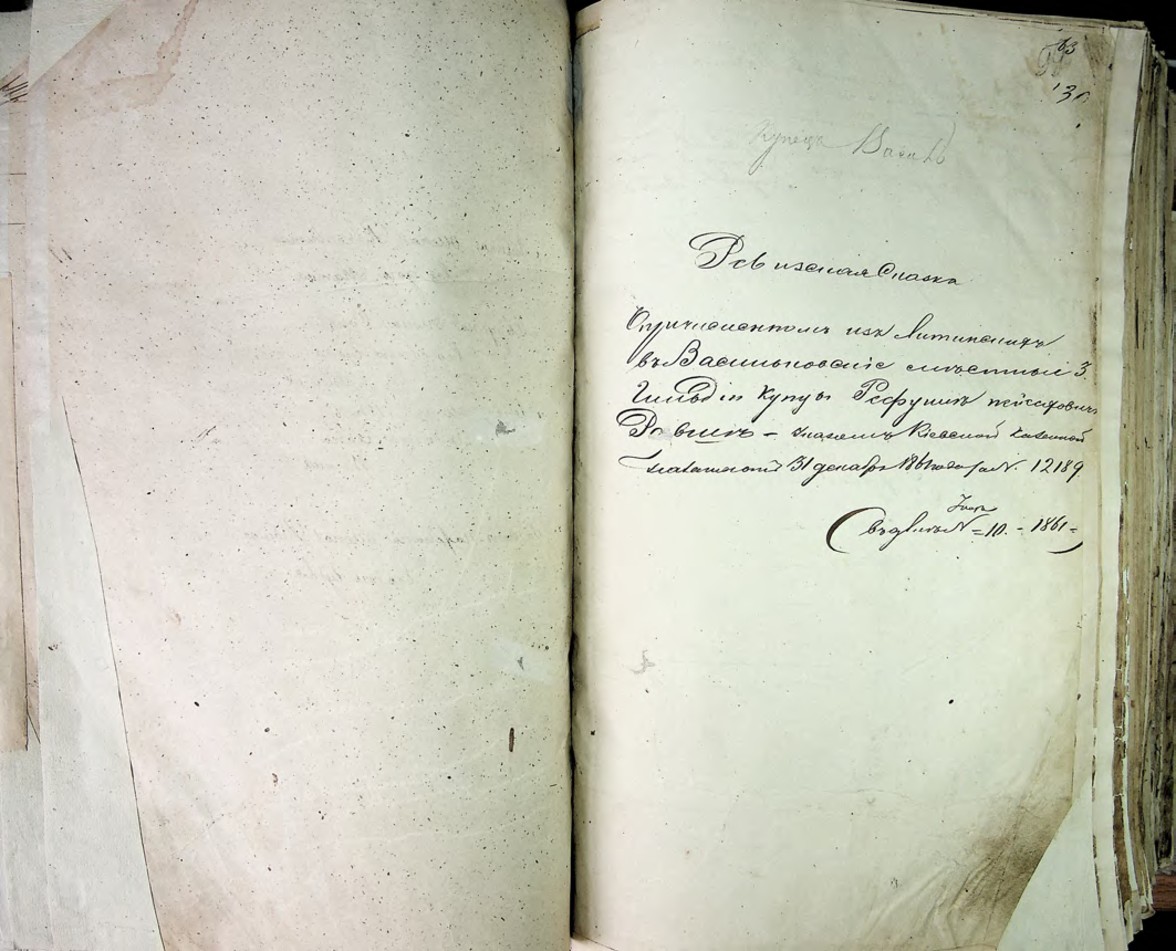 93
30
Купець Васил
Ревизская Сказка
О причисленномъ изъ Литинскихъ
въ Васильковские мѣстный 3.
Гильдіи Купцы Рефулить пейсаховичь
Ровшть – указомъ Кіевской казенной
палаты отъ 31 декабря 1861 года за N. 12189
(въ дѣлѣ N = 10. - 1861 =)